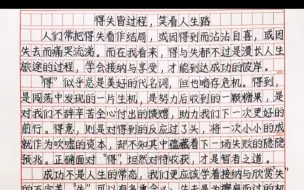 得失皆过程，笑看人生路
人们常把得失看作结局，或因得到而沾沾自喜，或因
失去而痛哭流涕。而在我看来，得与失都不过是漫长人生
旅途的过程，学会接纳与享受，才能到达成功的彼岸。
“得”似乎总是美好的代名词，但也暗存危机。得到，
是闯荡中发现的一片生机，是努力后收到的一颗糖果，是
对我们不辞辛苦全心付出的馈赠，助我们下一次更好的
前行。得意，则是对得到的反应过了头，将一次小小的成
就作为吹嘘的资本，却不知其中蕴藏着下一场失败的隐隐
预兆。正确面对“得”，坦然对待收获，才是智者之道。
成功不是人生的常态，我们更应该学着接纳与欣赏失